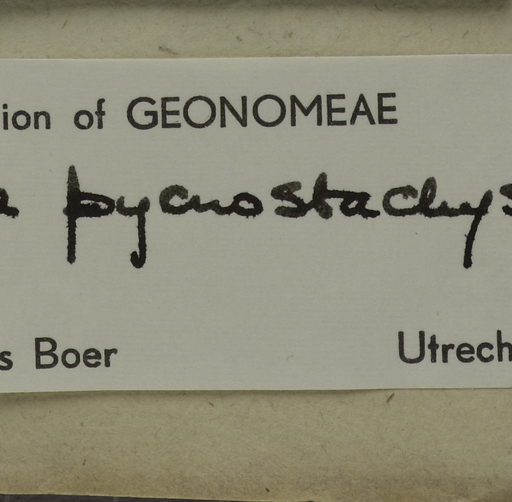 ion of GEONOMEAE
a pycnostachys
s Boer Utrech